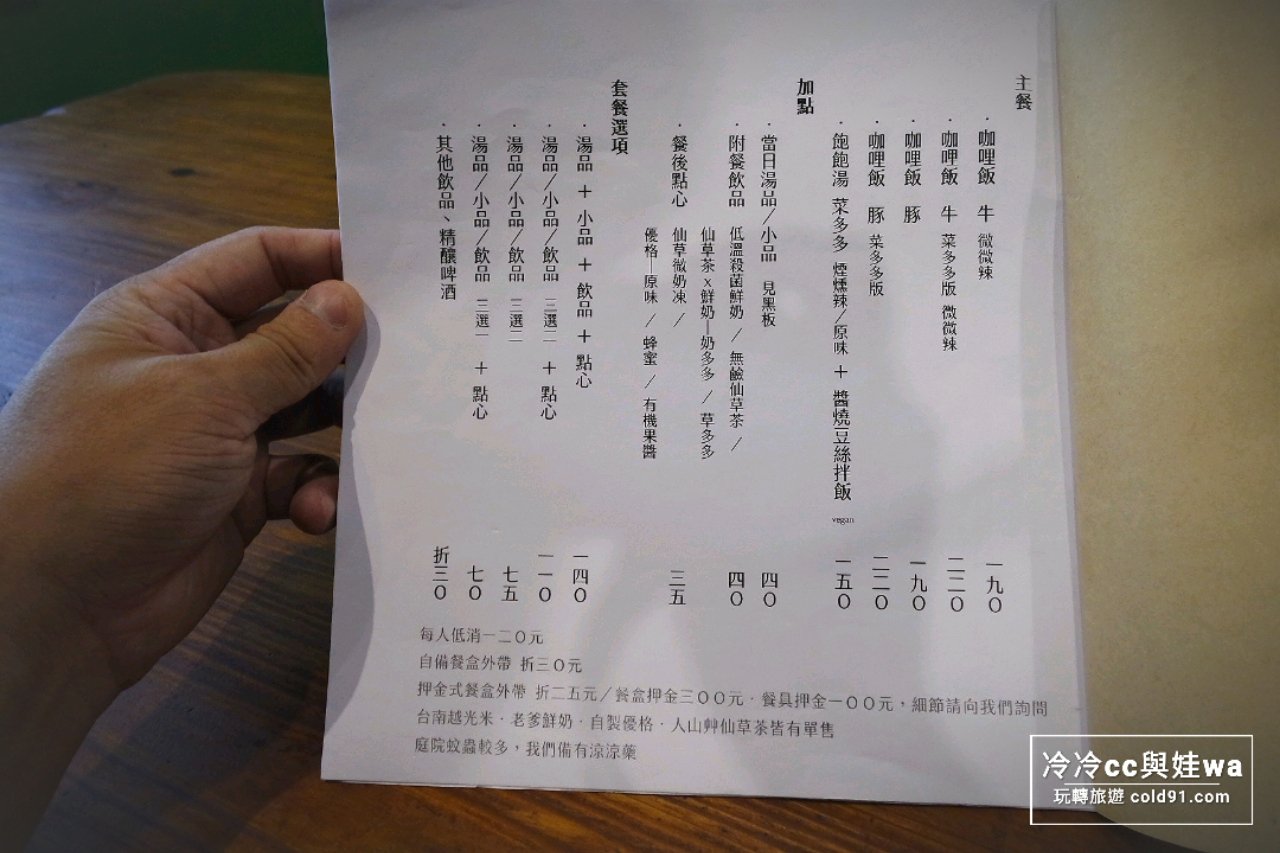 主餐
・咖哩飯 牛 微微辣 一九〇
・咖哩飯 牛 菜多多版 微微辣 二二〇
・咖哩飯 豚 一九〇
・咖哩飯 豚 菜多多版 二二〇
・飽飽湯 菜多多 煙燻辣/原味 + 醬燒豆絲拌飯 vegan 一五〇
加點
・當日湯品/小品 見黑板 四〇
・附餐飲品 低溫殺菌鮮奶 / 無鹼仙草茶 / 四〇
仙草茶x鮮奶—奶多多 / 草多多
・餐後點心 仙草微奶凍 / 三五
優格—原味 / 蜂蜜 / 有機果醬
套餐選項
・湯品 + 小品 + 飲品 + 點心 一四〇
・湯品/小品/飲品 三選二 + 點心 一一〇
・湯品/小品/飲品 三選二 七五
・湯品/小品/飲品 三選一 + 點心 七〇
・其他飲品、精釀啤酒 折三〇
每人低消一二〇元
自備餐盒外帶 折三〇元
押金式餐盒外帶 折二五元/餐盒押金三〇〇元・餐具押金一〇〇元，細節請向我們詢問
台南越光米・老爹鮮奶・自製優格・人山艸仙草茶皆有單售
庭院蚊蟲較多，我們備有涼涼藥
冷冷cc與娃wa
玩轉旅遊 cold91.com